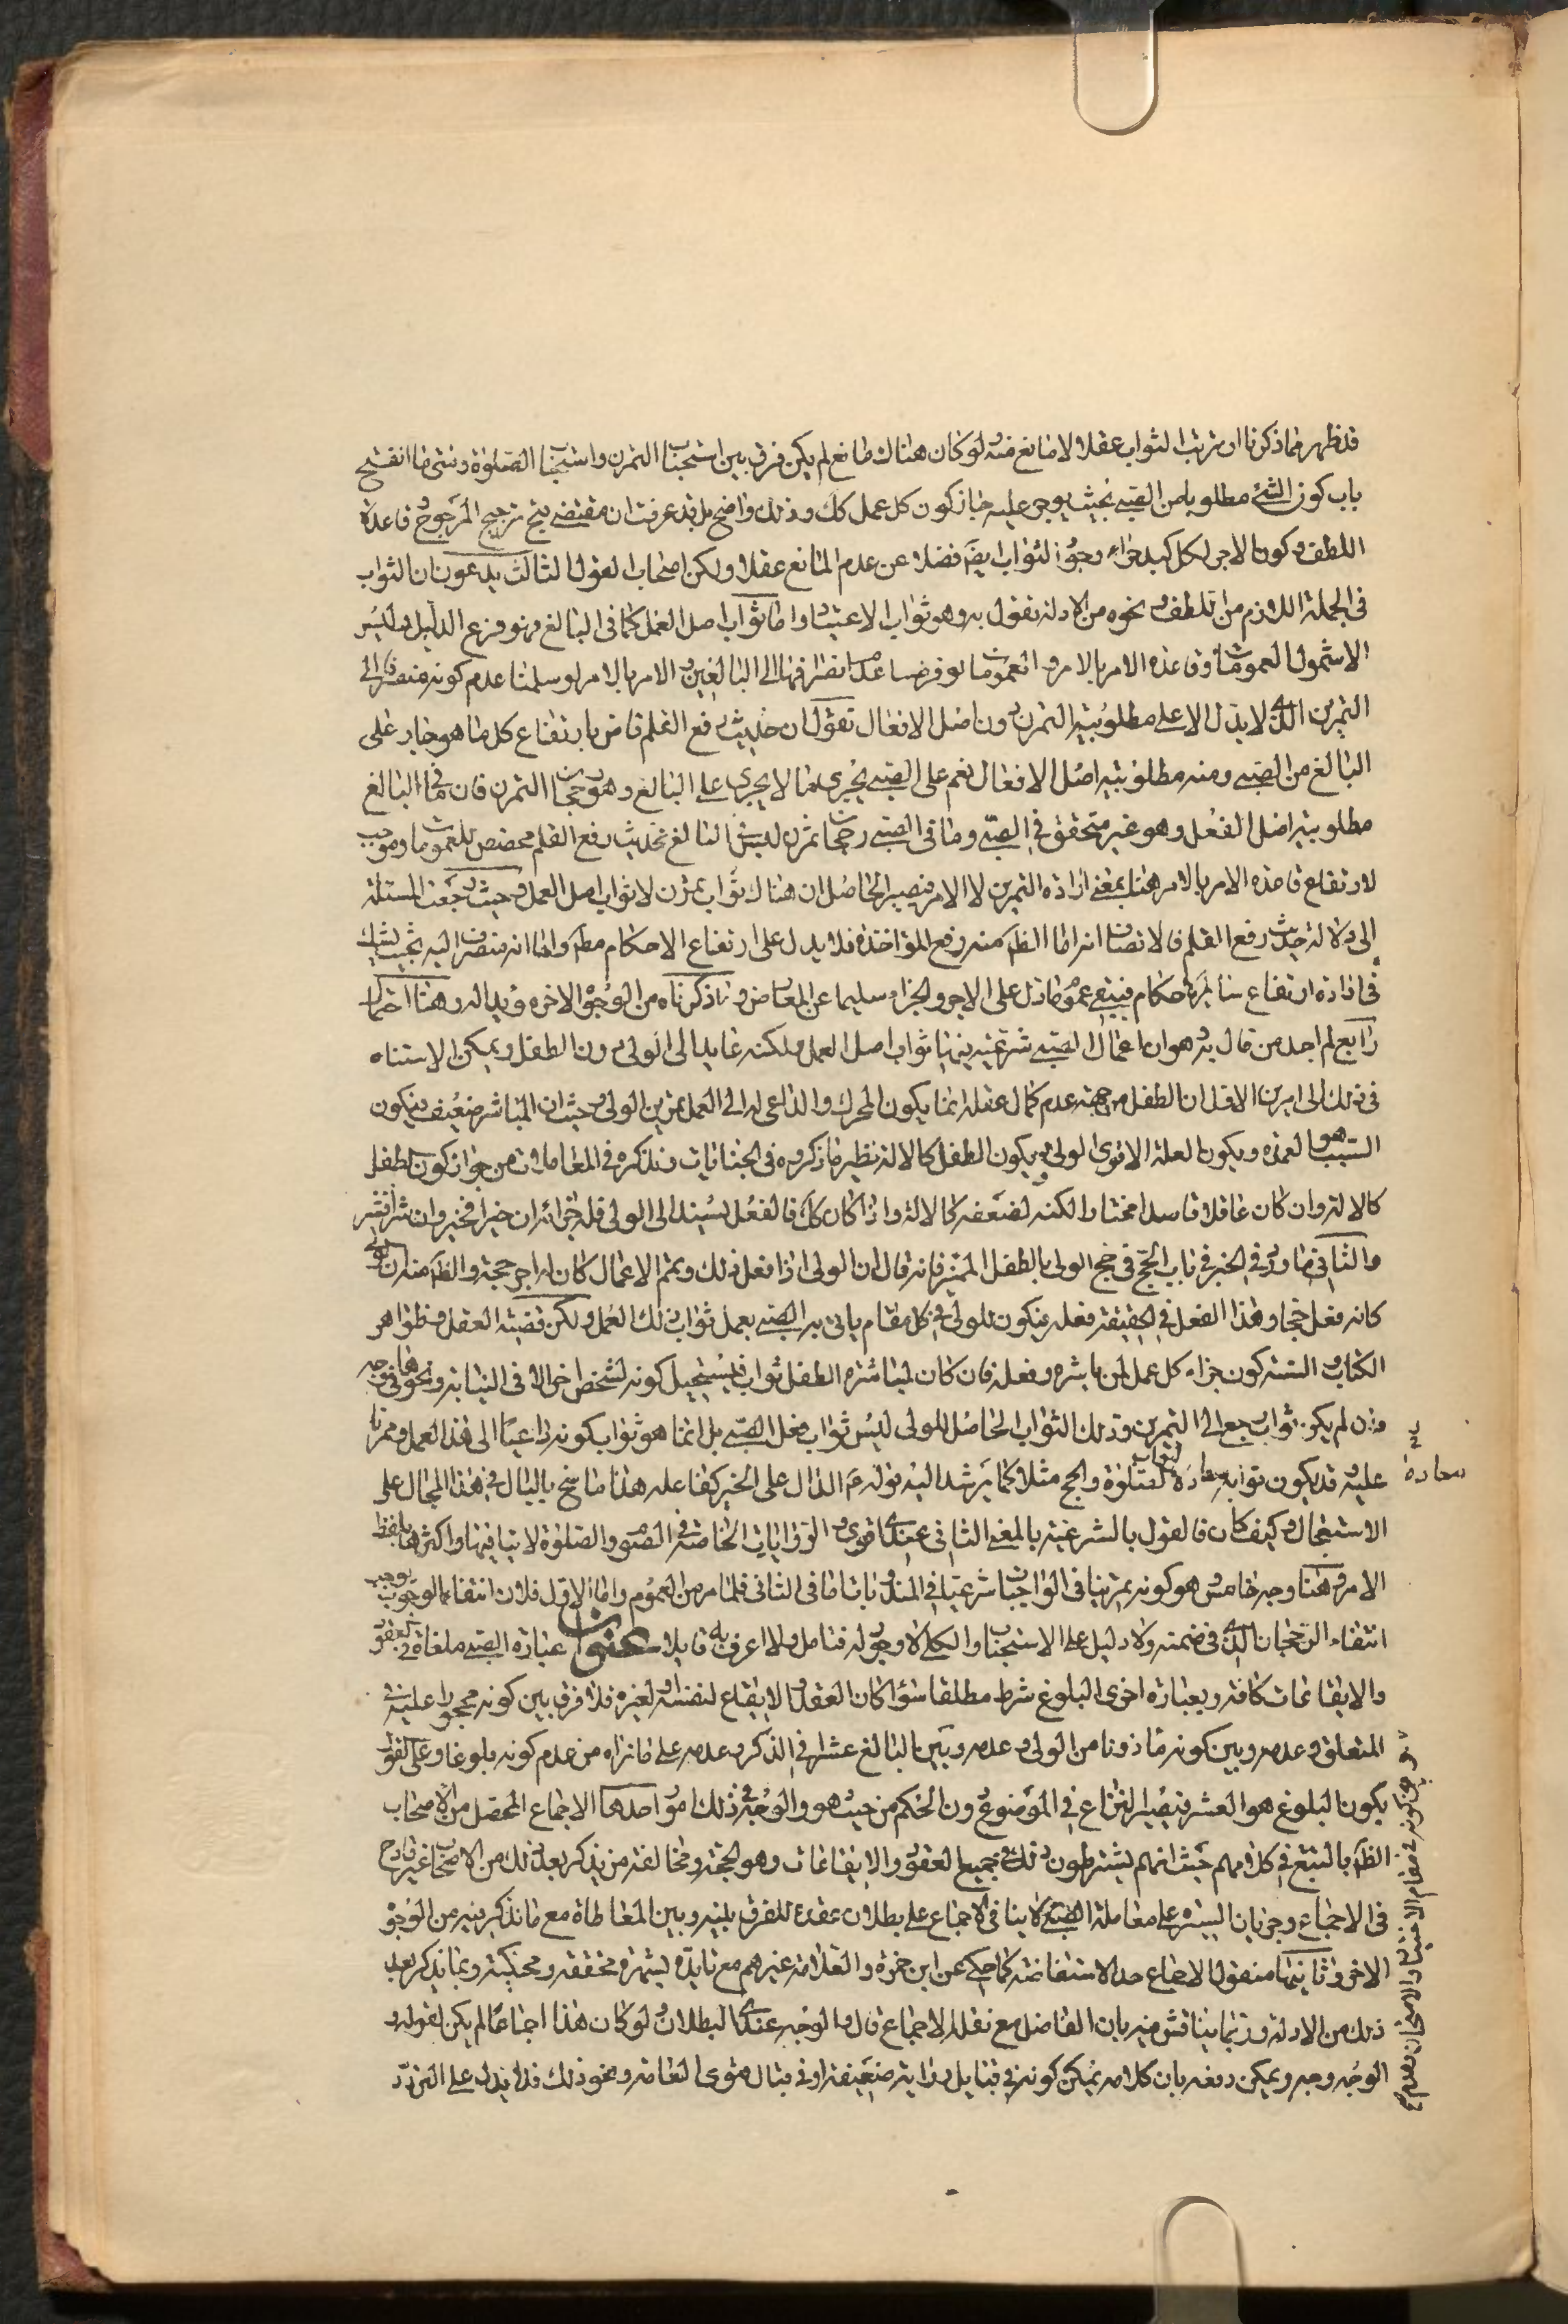 قد ظهر مما ذكرنا ان ترتب الثواب عقلا لا مانع منه لو كان هناك مانع لم يكن فرق بين استحباب التمرن واستحباب الصلوة ومتى ما انفتح
باب كون الشئ مطلوبا من الصبي بحيث يوجر عليه جاز كون كل عمل كك وذلك واضح بل قد عرفت ان مقتضى قبح ترجيح المرجوح قاعدة
اللطف وكون الاجر لكل كبد حراء وجوز الثواب ايضا فضلا عن عدم المانع عقلا ولكن اصحاب القول الثالث يدعون ان الثواب
في الجملة اللازم من اللطف ونحوه من الادلة نقول به وهو ثواب الاعتياد واما ثواب اصل العمل كما في البالغ فهو فرع الدليل وليس
الا شمول العمومات وقاعدة الامر بالامر والعمومات لو فرضنا عدم انصرافها الى البالغين والامر بالامر لو سلمنا عدم كونه منصرفا الى
التمرين الذي لا يدل الا على مطلوبية التمرن دون اصل الافعال نقول ان حديث رفع القلم قاض بارتفاع كل ما هو جار على
البالغ من الصبي ومنه مطلوبية اصل الافعال نعم على الصبي يجري ما لا يجري على البالغ وهو رجحان التمرن فان ما في البالغ
مطلوبية اصل الفعل وهو غير متحقق في الصبي وما في الصبي رجحان تمرن ليس في البالغ فحديث رفع القلم مخصص للعمومات وموجب
لارتفاع قاعدة الامر بالامر هنا بمعنى ارادة التمرين لا الامر فيصير الحاصل ان هناك ثواب تمرن لا ثواب اصل العمل وحيث رجعت المسئلة
الى دلالة حديث رفع القلم فالانصاف انه اما الظ منه رفع المؤاخذة فلا يدل على ارتفاع الاحكام مط واما انه منصرف اليه بحيث يشك
في ارادة ارتفاع سائر الاحكام فيبقى عموم ما دل على الاجر والجزاء سليما عن المعارض وما ذكرناه من الوجوه الاخر مؤيدا له وهنا احتمال
رابع لم اجد من قال به وهو ان اعمال الصبي شرعية فيها ثواب اصل العمل ولكنه عايد الى الولي دون الطفل ويمكن الاستناد
في ذلك الى امرين الاول ان الطفل من جهة عدم كمال عقله انما يكون المحرك والداعي له الى العمل تمرين الولي وحيث ان المباشر ضعيف فيكون
السبب هو العمدة ويكون العلة الاقوى الولي ويكون الطفل كالالة نظير ما ذكروه في الجنايات ونذكره في المعاملات من جواز كون الطفل
كالالة وان كان عاقلا قاصدا مختارا لكنه لضعفه كالالة واذا كان كك فالفعل يسند الى الولي فله جزائه ان خيرا فخير وان شرا فشر
والثاني ما ورد في الخبر في باب الحج في حج الولي بالطفل المميز فانه قال ان الولي اذا فعل ذلك ويتم الاعمال كان له اجر حجة والظ منه ان الولي
كانه فعل حجا وهذا الفعل في الحقيقة فعله فيكون للولي في كل مقام ياتي به الصبي بعمل ثواب ذلك العمل ولكن قضية العقل وظواهر
الكتاب والسنة كون جزاء كل عمل لمن باشره وفعله فان كان لمباشرة الطفل ثواب فيستحيل كونه لشخص اخر الا في النيابة ونحوها في وجه
وان لم يكن ثواب رجع الى التمرين وذلك الثواب الحاصل للولي ليس ثواب فعل الصبي بل انما هو ثواب كونه داعيا الى هذا العمل وممرنا
عليه وقد يكون ثوابه معادلا لثواب الصلوة والحج مثلا كما يرشد اليه قوله ع الدال على الخير كفاعله هذا ما سنح بالبال في هذا المجال على
الاستعجال وكيف كان فالقول بالشرعية بالمعنى الثاني عندي اقوى والروايات الخاصة في الصوم والصلوة لا ينافيها واكثرها بلفظ
الامر وهنا وجه خامس هو كونه تمرينا في الواجبات شرعيا في المندوبات اما في الثاني فلما مر من العموم واما الاول فلان انتفاء الوجوب يوجب
انتفاء الرجحان الذي في ضمنه ولا دليل على الاستحباب والكلي لا وجود له فتامل ولا اعرف به قايلا عنوان عبارة الصبي ملغاة في العقود
والايقاعات كافة وبعبارة اخرى البلوغ شرط مطلقا سواء كان العقد والايقاع لنفسه او لغيره فلا فرق بين كونه محجورا عليه في
المتعلق وعدمه وبين كونه ماذونا من الولي وعدمه وبين البالغ عشرا في الذكر وعدمه على ما نراه من عدم كونه بلوغا وعلى القول
بكون البلوغ هو العشر فيصير النزاع في الموضوع دون الحكم من حيث هو والوجه في ذلك امور احدها الاجماع المحصل من الاصحاب
الظ بالتتبع في كلامهم حيث انهم يشترطون ذلك في جميع العقود والايقاعات وهو الحجة ومخالفة من يذكر بعد ذلك من الاصحاب غير قادح
في الاجماع وجريان السيرة على معاملة الصبي لا ينافي الاجماع على بطلان عقده للفرق بينه وبين المعاطاة مع ما نذكر فيه من الوجوه
الاخر وثانيها منقول الاجماع حد الاستفاضة كما حكى عن ابن حمزة والعلامة وغيرهم مع تايده بشهرة محققة ومحكية وبما يذكر بعد
ذلك من الادلة وربما يناقش فيه بان الفاضل مع نقله الاجماع قال والوجه عندي البطلان ولو كان هذا اجماعا لم يكن لقوله و
الوجه وجه ويمكن دفعه بان كلامه يمكن كونه في قبال رواية ضعيفة او في قبال فتوى العامة ونحو ذلك فلا يدل على التردد
معادة